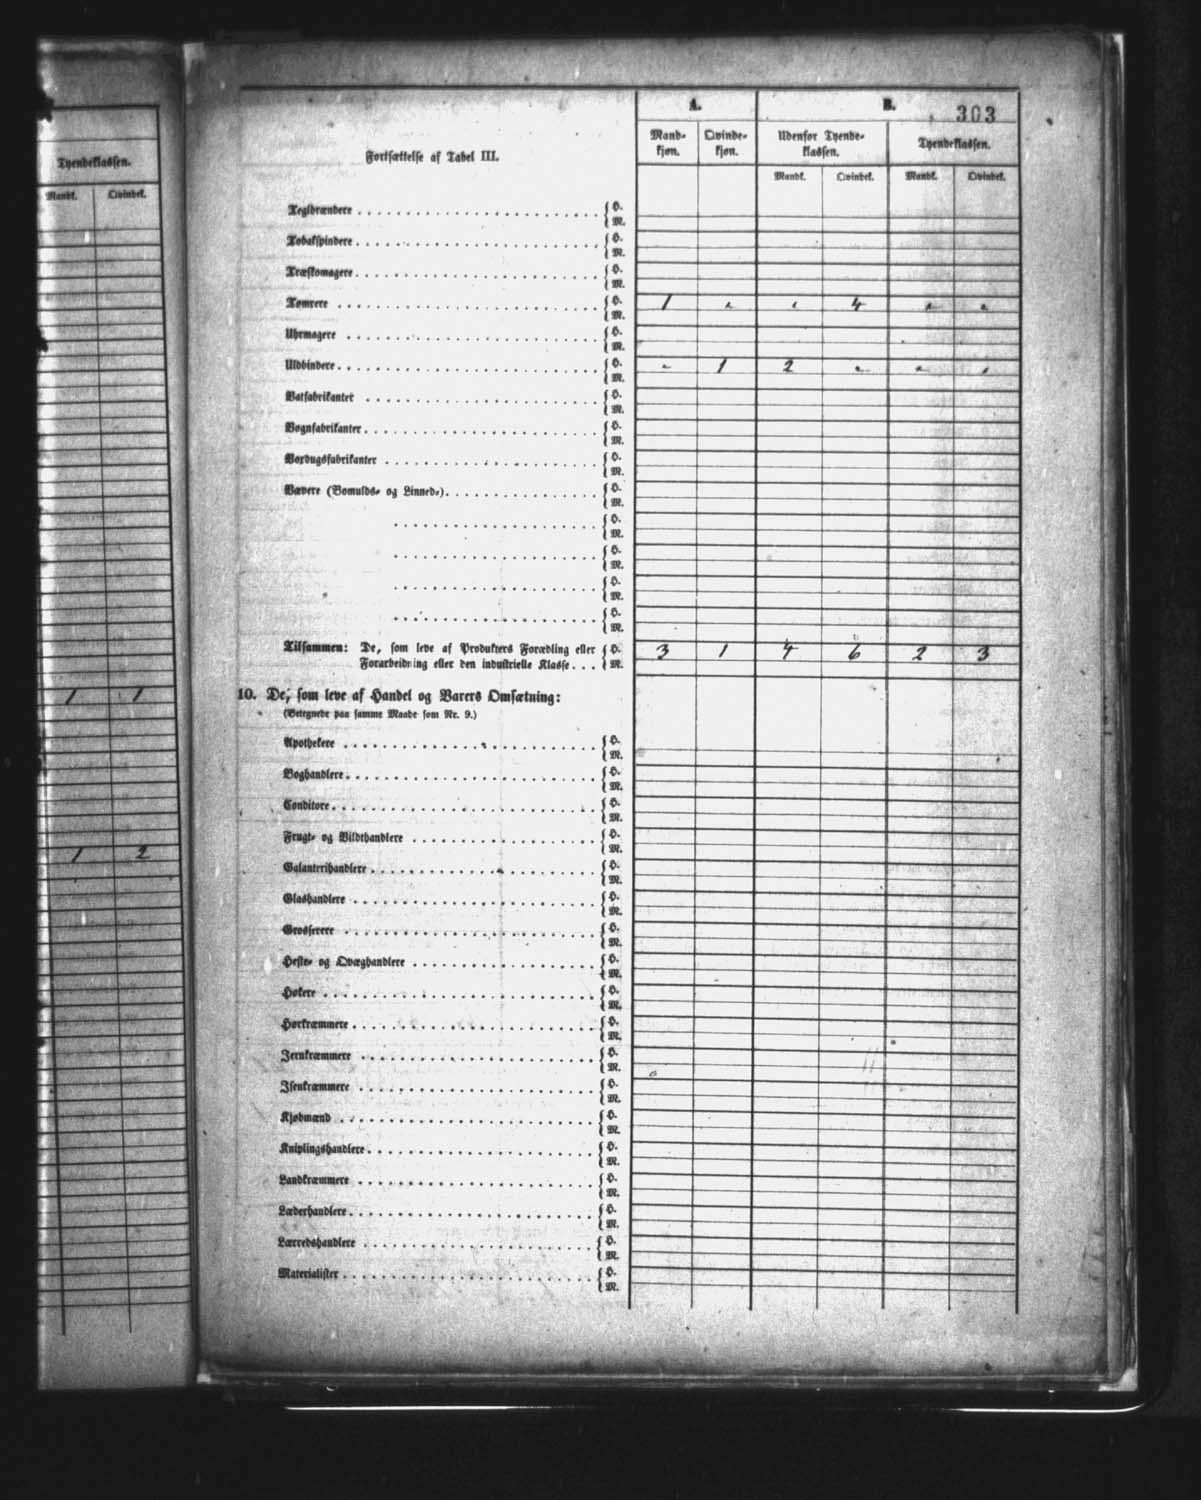 Tyendeklassen.
Mandk. Qvindek.
1 1
1 2
303
A. B.
Fortsættelse af Tabel III.
Mand-kjøn. Qvinde-kjøn. Udenfor Tyende-klassen. Tyendeklassen.
Mandk. Qvindek. Mandk. Qvindek.
Teglbrændere { H.
{ M.
Tobakspindere { H.
{ M.
Træskomagere { H.
{ M.
Tømrere { H. 1 " " 4 " "
{ M.
Uhrmagere { H.
{ M.
Uldbindere { H. " 1 2 " " "
{ M.
Vatfabrikanter { H.
{ M.
Vognfabrikanter { H.
{ M.
Voxdugsfabrikanter { H.
{ M.
Vævere (Bomulds- og Linned-) { H.
{ M.
{ H.
{ M.
{ H.
{ M.
{ H.
{ M.
{ H.
{ M.
Tilsammen: De, som leve af Produkters Forædling eller { H. 3 1 4 6 2 3
Forarbeidning eller den industrielle Klasse { M.
10. De, som leve af Handel og Varers Omsætning:
(Betegnede paa samme Maade som Nr. 9.)
Apothekere { H.
{ M.
Boghandlere { H.
{ M.
Conditore { H.
{ M.
Frugt- og Vildthandlere { H.
{ M.
Galanterihandlere { H.
{ M.
Glashandlere { H.
{ M.
Grosserere { H.
{ M.
Heste- og Qvæghandlere { H.
{ M.
Høkere { H.
{ M.
Hørkræmmere { H.
{ M.
Jernkræmmere { H.
{ M.
Isenkræmmere { H.
{ M.
Kjøbmænd { H.
{ M.
Kniplingshandlere { H.
{ M.
Landkræmmere { H.
{ M.
Læderhandlere { H.
{ M.
Lærredshandlere { H.
{ M.
Materialister { H.
{ M.